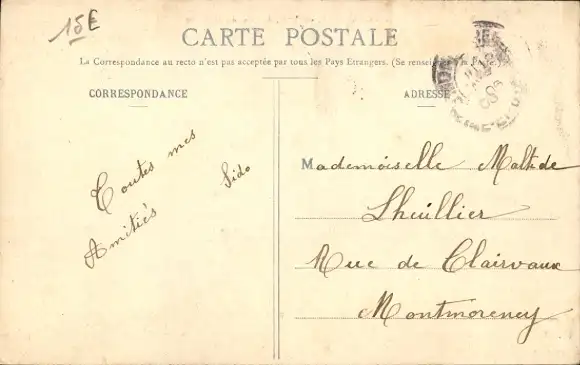 15E
CARTE POSTALE
La Correspondance au recto n'est pas acceptée par tous les Pays Etrangers. (Se renseigner à la Poste)
CORRESPONDANCE
Toutes mes
Amitiés
Sido
ADRESSE
Mademoiselle Maltide
Lheüllier
Rue de Clairvaux
Montmorency